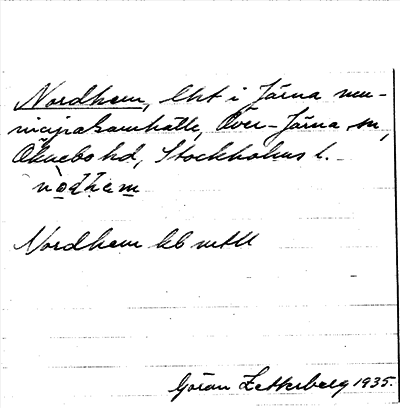 Nordhem, lht i Järna mu-
nicipalsamhälle, Över-Järna sn,
Öknebo hd, Stockholms l.
Nordhem
Göran Zetterberg 1935.